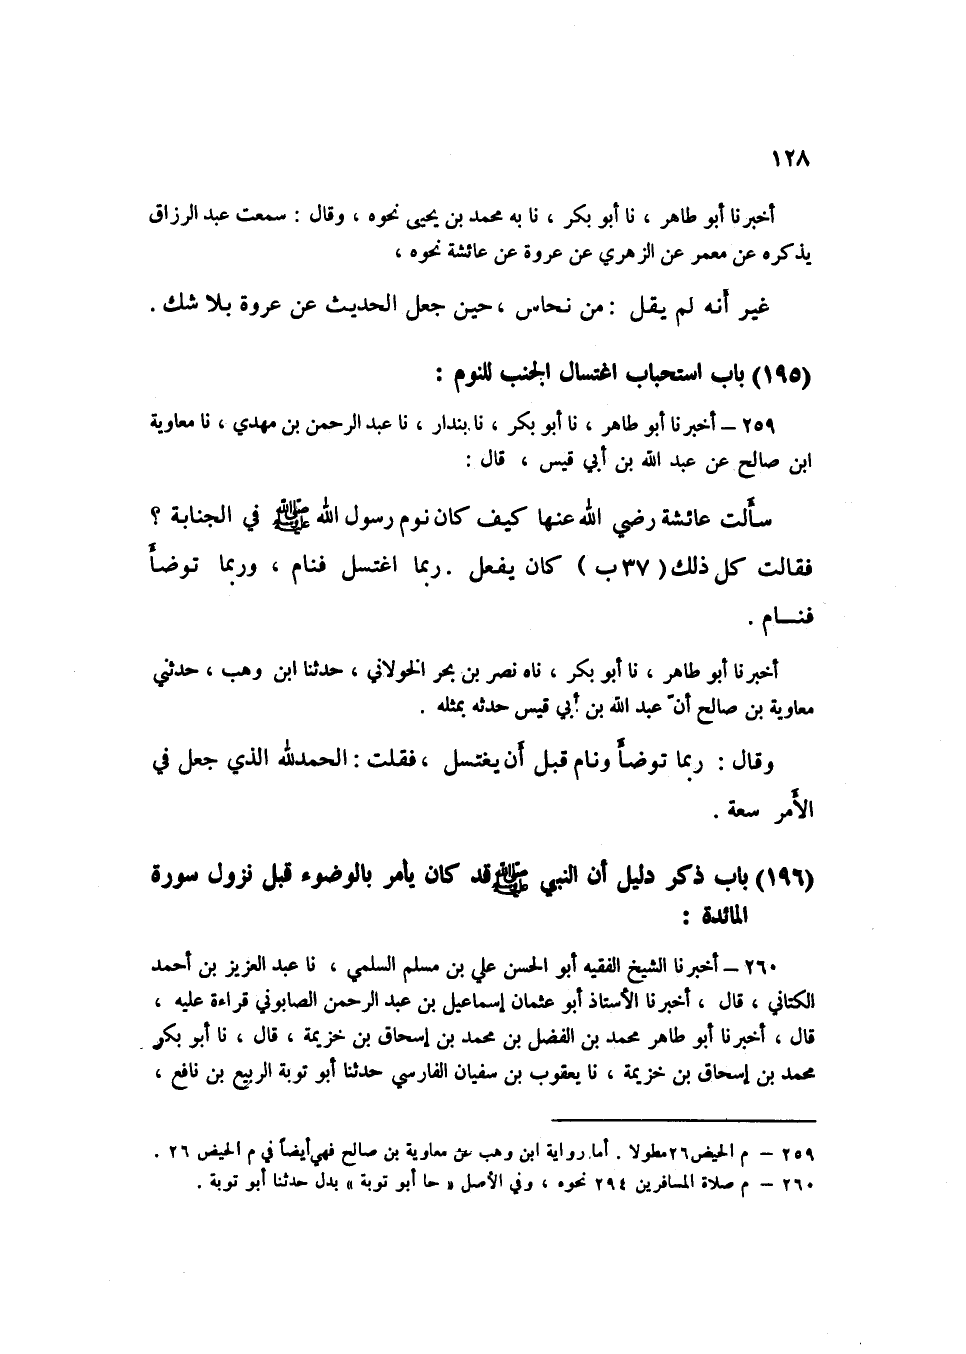 ١٢٨
أخبرنا أبو طاهر ، نا أبو بكر ، نا به محمد بن يحيى نحوه ، وقال : سمعت عبد الرزاق
يذكره عن معمر عن الزهري عن عروة عن عائشة نحوه ،
غير أنه لم يقل : من نحاس ، حين جعل الحديث عن عروة بلا شك .
(١٩٥) باب استحباب اغتسال الجنب للنوم :
٢٥٩ – أخبرنا أبو طاهر ، نا أبو بكر ، نا بندار ، نا عبد الرحمن بن مهدي ، نا معاوية
ابن صالح عن عبد الله بن أبي قيس ، قال :
سألت عائشة رضي الله عنها كيف كان نوم رسول الله ﷺ في الجنابة ؟
فقالت كل ذلك ( ٣٧ ب ) كان يفعل . ربما اغتسل فنام ، وربما توضأ
فنــام .
أخبرنا أبو طاهر ، نا أبو بكر ، ناه نصر بن بحر الخولاني ، حدثنا ابن وهب ، حدثني
معاوية بن صالح أنّ عبد الله بن أبي قيس حدثه بمثله .
وقال : ربما توضأ ونام قبل أن يغتسل ، فقلت : الحمدلله الذي جعل في
الأمر سعة .
(١٩٦) باب ذكر دليل أن النبي ﷺ قد كان يأمر بالوضوء قبل نزول سورة
المائدة :
٢٦٠ – أخبرنا الشيخ الفقيه أبو الحسن علي بن مسلم السلمي ، نا عبد العزيز بن أحمد
الكتاني ، قال ، أخبرنا الأستاذ أبو عثمان إسماعيل بن عبد الرحمن الصابوني قراءة عليه ،
قال ، أخبرنا أبو طاهر محمد بن الفضل بن محمد بن إسحاق بن خزيمة ، قال ، نا أبو بكر
محمد بن إسحاق بن خزيمة ، نا يعقوب بن سفيان الفارسي حدثنا أبو توبة الربيع بن نافع ،
٢٥٩ – م الحيض ٢٦ مطولا . أما رواية ابن وهب عن معاوية بن صالح فهي أيضاً في م الحيض ٢٦ .
٢٦٠ – م صلاة المسافرين ٢٩٤ نحوه ، وفي الأصل « حا أبو توبة » بدل حدثنا أبو توبة .